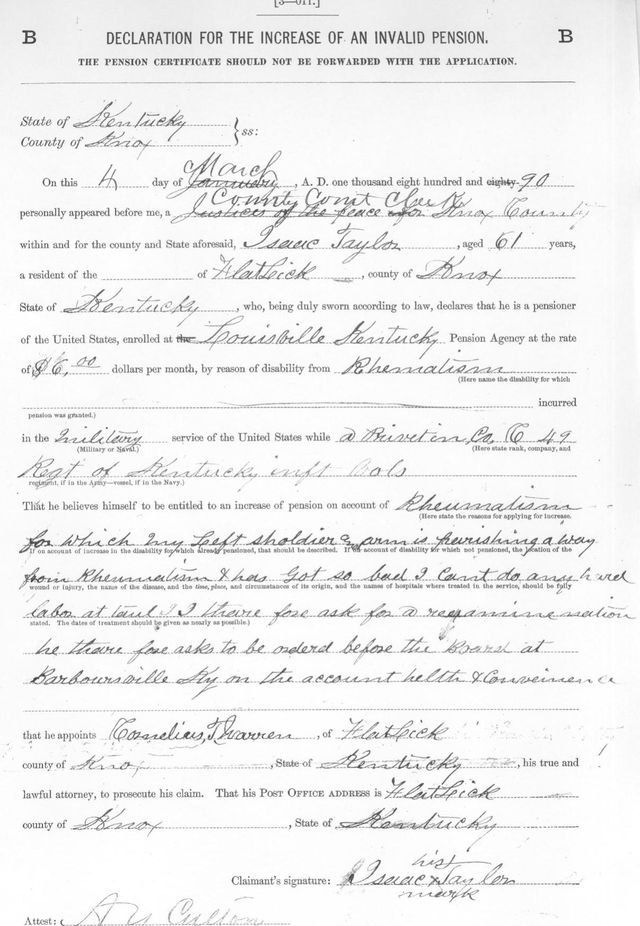 [3—011.]
B DECLARATION FOR THE INCREASE OF AN INVALID PENSION. B
THE PENSION CERTIFICATE SHOULD NOT BE FORWARDED WITH THE APPLICATION.
State of Kentucky
County of Knox } ss:
March
On this 4 day of January, A. D. one thousand eight hundred and eighty 90
County Court Clerk
personally appeared before me, a Justices of the peace for Knox County
within and for the county and State aforesaid, Isaac Taylor, aged 61 years,
a resident of the of Flat Lick, county of Knox
State of Kentucky, who, being duly sworn according to law, declares that he is a pensioner
of the United States, enrolled at the Louisville Kentucky Pension Agency at the rate
of $6,00 dollars per month, by reason of disability from Rhematism
(Here name the disability for which
incurred
pension was granted.)
in the military service of the United States while a Privet in Co. C 49
(Military or Naval.) (Here state rank, company, and
Regt of Kentucky inft Vols
regiment, if in the Army—vessel, if in the Navy.)
That he believes himself to be entitled to an increase of pension on account of Rheumatism
(Here state the reasons for applying for increase.
for which my Left sholder & arm is perishing a way
If on account of increase in the disability for which already pensioned, that should be described. If on account of disability for which not pensioned, the location of the
from Rheumatism & has Got so bad I Cant do any hard
wound or injury, the name of the disease, and the time, place, and circumstances of its origin, and the names of hospitals where treated in the service, should be fully
labor at taul I thare fore ask for a reexamination
stated. The dates of treatment should be given as nearly as possible.)
he thare fore asks to be orderd before the Board at
Barboursville Ky on the account helth & Conveinence
that he appoints Cornelius, T Warren, of Flat Lick
county of Knox, State of Kentucky, his true and
lawful attorney, to prosecute his claim. That his POST OFFICE ADDRESS is Flat Lick
county of Knox, State of Kentucky
his
Claimant's signature: Isaac x Taylor
mark
Attest: Culton